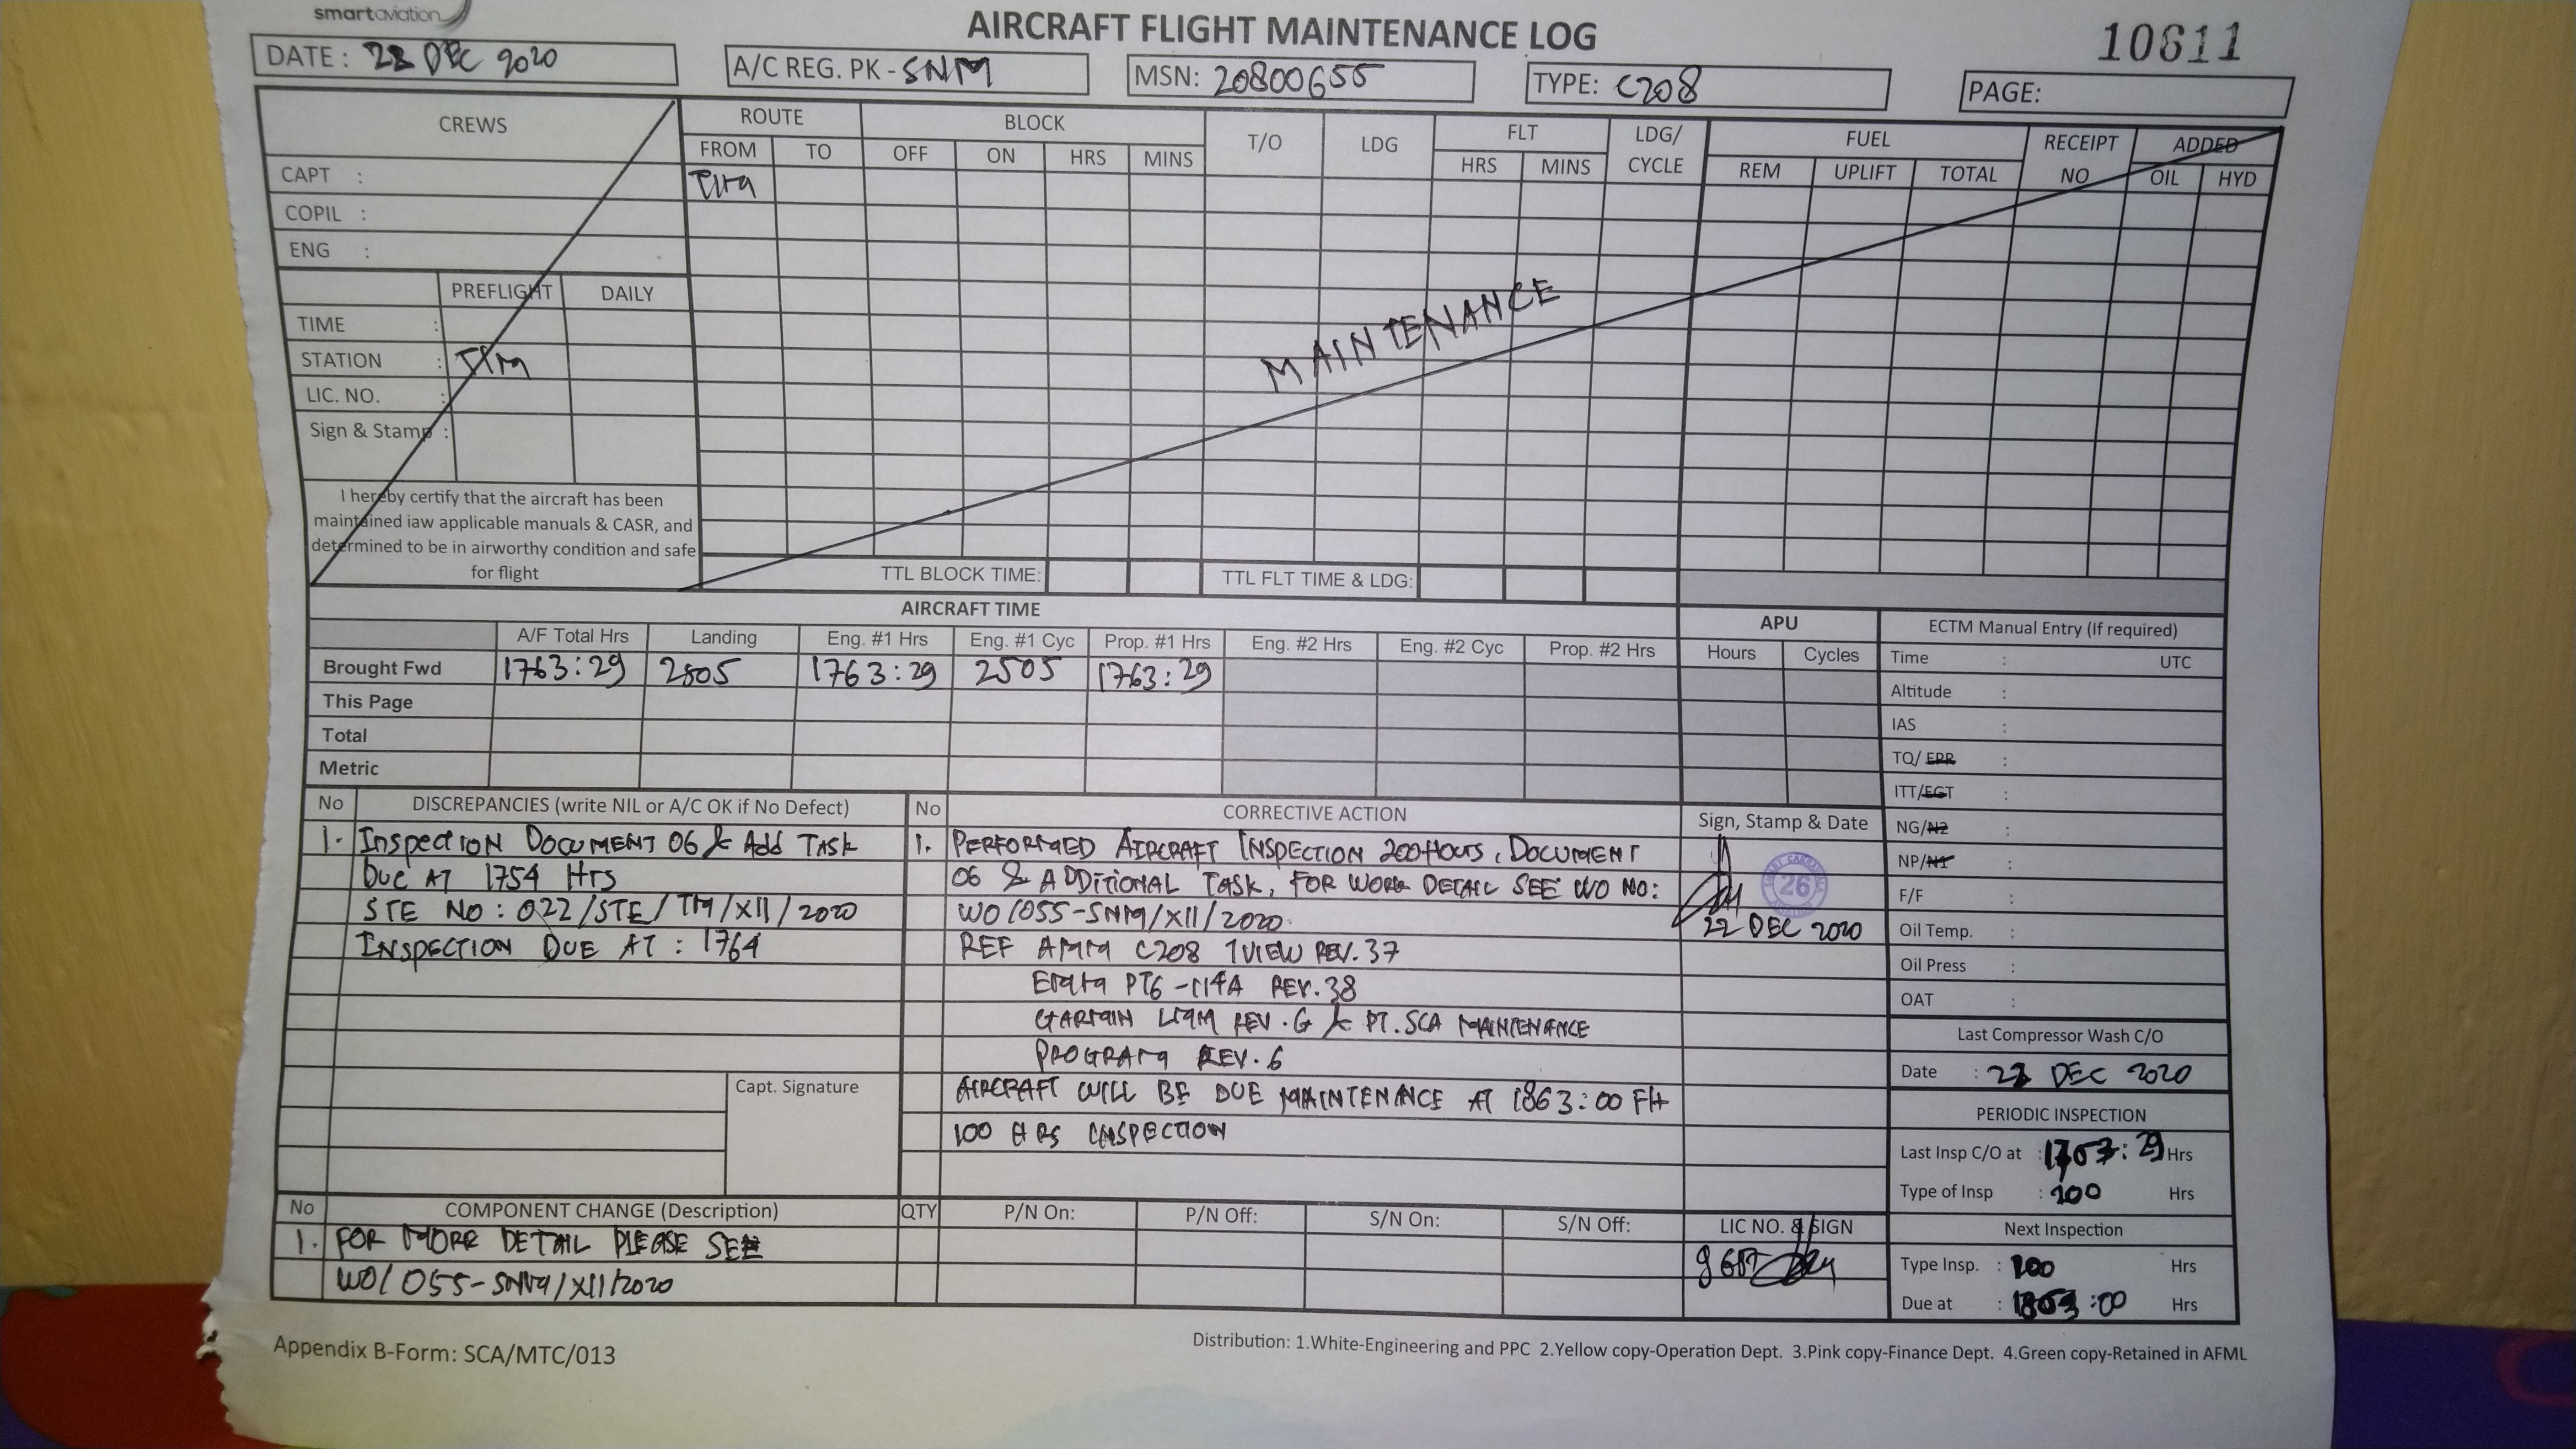 smartaviation
AIRCRAFT FLIGHT MAINTENANCE LOG
10611
DATE : 22 DEC 2020
A/C REG. PK - SNM
MSN: 20800655
TYPE: C208
PAGE:
CREWS
ROUTE BLOCK T/O LDG FLT LDG/ CYCLE FUEL RECEIPT NO ADDED
FROM TO OFF ON HRS MINS HRS MINS REM UPLIFT TOTAL OIL HYD
CAPT :
TIM
COPIL :
ENG :
PREFLIGHT DAILY
TIME :
STATION : TIM
LIC. NO. :
Sign & Stamp :
MAINTENANCE
I hereby certify that the aircraft has been
maintained iaw applicable manuals & CASR, and
determined to be in airworthy condition and safe
for flight
TTL BLOCK TIME: TTL FLT TIME & LDG:
AIRCRAFT TIME
A/F Total Hrs Landing Eng. #1 Hrs Eng. #1 Cyc Prop. #1 Hrs Eng. #2 Hrs Eng. #2 Cyc Prop. #2 Hrs
Brought Fwd 1763:29 2505 1763:29 2505 1763:29
This Page
Total
Metric
APU
Hours Cycles
ECTM Manual Entry (If required)
Time : UTC
Altitude :
IAS :
TQ/ EPR :
ITT/EGT :
NG/N2 :
NP/N1 :
F/F :
Oil Temp. :
Oil Press :
OAT :
No DISCREPANCIES (write NIL or A/C OK if No Defect)
1. Inspection DOCUMENT 06 & Add TASK
Due AT 1754 Hrs
STE NO : 022/STE/TM/XII/2020
INSPECTION DUE AT : 1764
Capt. Signature
No CORRECTIVE ACTION
1. PERFORMED AIRCRAFT INSPECTION 200 HOURS, DOCUMENT
06 & ADDITIONAL TASK, FOR WORK DETAIL SEE WO NO:
WO/055-SNM/XII/2020.
REF AMM C208 1VIEW REV.37
EMM PT6-114A REV.38
GARMIN LMM REV.G & PT.SCA MAINTENANCE
PROGRAM REV.6
AIRCRAFT WILL BE DUE MAINTENANCE AT 1863:00 FH
100 HRS INSPECTION
Sign, Stamp & Date
26
22 DEC 2020
Last Compressor Wash C/O
Date : 22 DEC 2020
PERIODIC INSPECTION
Last Insp C/O at : 1763:29 Hrs
Type of Insp : 200 Hrs
Next Inspection
Type Insp. : 100 Hrs
Due at : 1863:00 Hrs
No COMPONENT CHANGE (Description) QTY P/N On: P/N Off: S/N On: S/N Off: LIC NO. & SIGN
1. FOR MORE DETAIL PLEASE SEE
WO/055-SNM/XII/2020
Appendix B-Form: SCA/MTC/013
Distribution: 1.White-Engineering and PPC 2.Yellow copy-Operation Dept. 3.Pink copy-Finance Dept. 4.Green copy-Retained in AFML